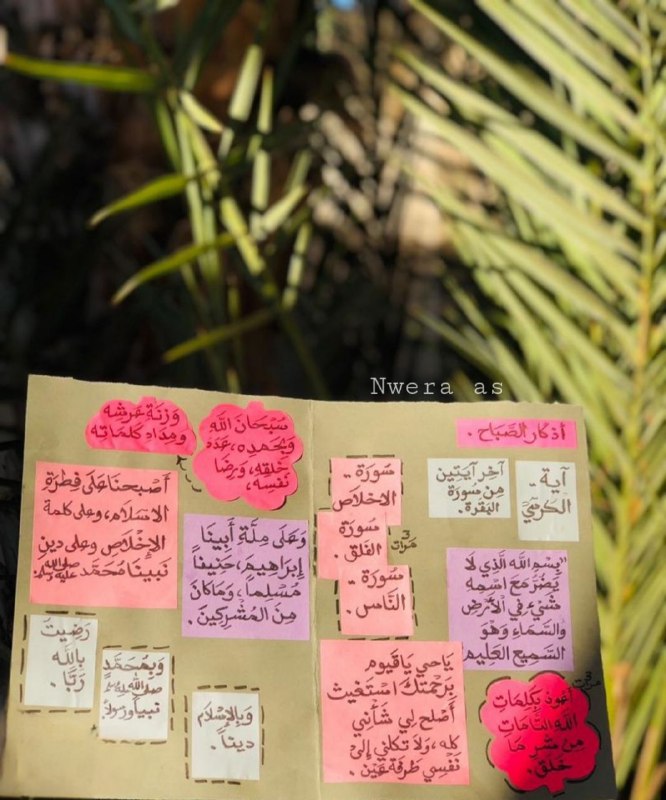 Nwera as
أذكار الصَّباح.
آية
الكرسيّ.
آخر آيَتين
مِن سورَة
البَقرة.
سُورَة
الإخلاص
سُورَة
الفَلق.
سُورَة
النَّاس.
3
مَرات
"بِسْمِ اللَّه الَّذِي لَا
يَضُرُّ مَعَ اسْمِهِ
شَيْءٌ فِي الأَرْضِ
وَالسَّمَاءِ وَهُوَ
السَّمِيع العَلِيم
يَاحي يَاقيوم
بِرَحْمَتك أَسْتَغيث
أصْلح لِي شَأْنِي
كله، وَلَا تَكلني إِلىٰ
نَفْسِي طَرفَة عَيْن.
3 مرات
أعوذ بِكَلِمَاتِ
اللَّه التَّامَّات
مِن شَر مَا
خَلَق.
سُبْحَانَ اللَّه
وَبحَمدِه، عَدَدَ
خَلقه، وَرِضَا
نَفْسِه،
وَزِنَةَ عَرشِه
ومِدَادِ كلماتِه
أَصْبَحنَا عَلَى فِطرَةِ
الإسْلام، وعَلى كَلمة
الإِخْلَاص وعَلى دِينِ
نَبينَا مُحَمَّد صلى الله عليه وسلم،
وَعَلَى مِلَّةِ أَبِينَا
إِبرَاهِيم، حَنِيفًا
مُسْلِماً، وَمَاكَانَ
مِنَ المُشْرِكِينَ.
رَضِيت
باللَّه
رَبًّا.
وَبالإسْلام
دينًا.
وَبمُحَمَّد
صلى الله عليه وسلم
نَبياً وَرسولاً.